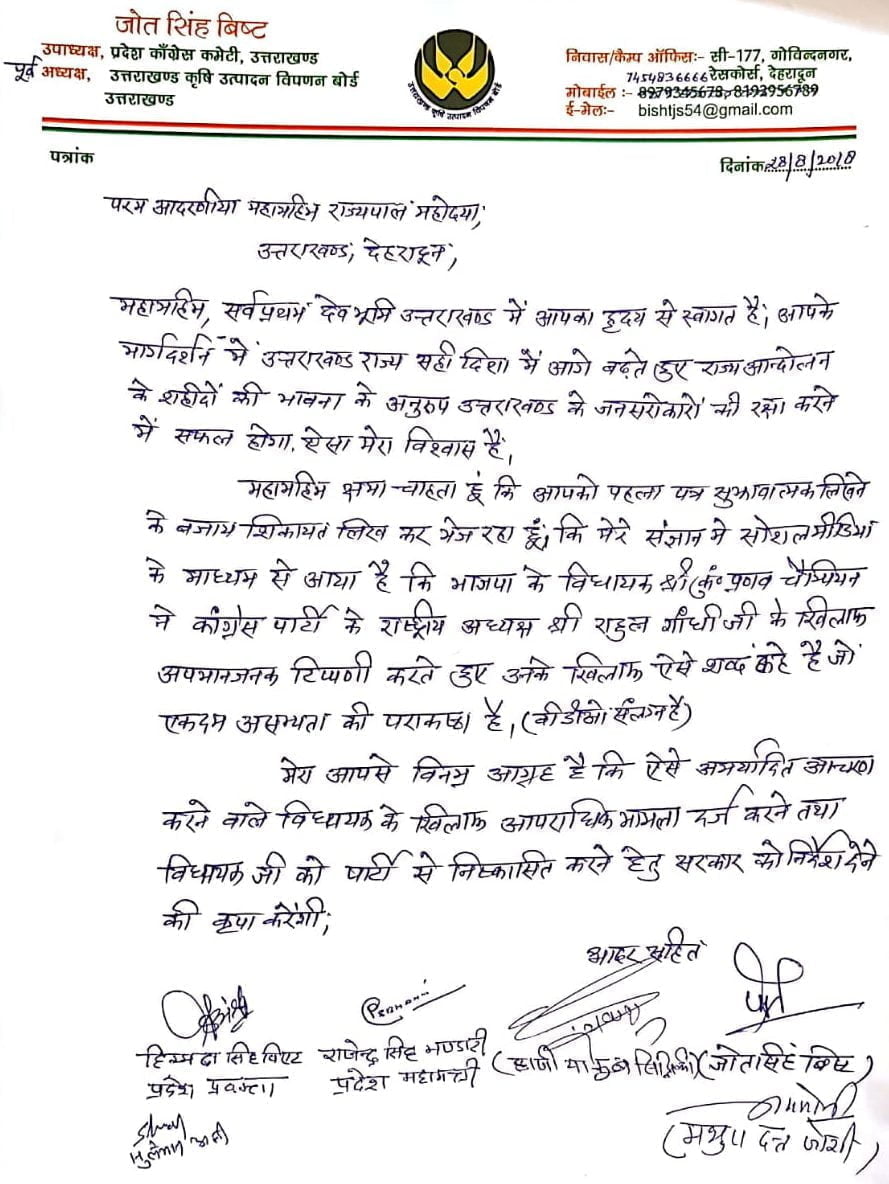 जोत सिंह बिष्ट
उपाध्यक्ष, प्रदेश काँग्रेस कमेटी, उत्तराखण्ड
पूर्व अध्यक्ष, उत्तराखण्ड कृषि उत्पादन विपणन बोर्ड
उत्तराखण्ड
उत्तराखण्ड कृषि उत्पादन विपणन बोर्ड
निवास/कैम्प ऑफिसः- सी-177, गोविन्दनगर,
7454836666 रेसकोर्स, देहरादून
मोबाईल :- 8979345678, 8193956789
ई-मेलः- bishtjs54@gmail.com
पत्रांक
दिनांक 28/8/2018
परम आदरणीया महामहिम राज्यपाल महोदया,
उत्तराखण्ड, देहरादून,
महामहिम, सर्वप्रथम देवभूमि उत्तराखण्ड में आपका हृदय से स्वागत है, आपके
मार्गदर्शन में उत्तराखण्ड राज्य सही दिशा में आगे बढ़ते हुए राज्य आन्दोलन
के शहीदों की भावना के अनुरुप उत्तराखण्ड के जनसरोकारों की रक्षा करने
में सफल होगा. ऐसा मेरा विश्वास है,
महामहिम क्षमा चाहता हूं कि आपको पहला पत्र सुझावात्मक लिखने
के बजाय शिकायत लिख कर भेज रहा हूं, कि मेरे संज्ञान मे सोशल मीडिया
के माध्यम से आया है कि भाजपा के विधायक श्री कुं० प्रणव चैम्पियन
ने कांग्रेस पार्टी के राष्ट्रीय अध्यक्ष श्री राहुल गाँधी जी के खिलाफ
अपमानजनक टिप्पणी करते हुए उनके खिलाफ ऐसे शब्द कहे है जो
एकदम असभ्यता की पराकष्ठा है, (वीडीओ संलग्न है)
मेरा आपसे विनम्र आग्रह है कि ऐसे अमर्यादित आचरण
करने वाले विधायक के खिलाफ आपराधिक मामला दर्ज करने तथा
विधायक जी को पार्टी से निष्कासित करने हेतु सरकार को निर्देश देने
की कृपा करेंगी,
आदर सहित
राजेन्द्र सिंह भण्डारी
(जोत सिंह बिष्ट)
प्रदेश प्रवक्ता
प्रदेश महामन्त्री
(मथुरा दत्त जोशी)